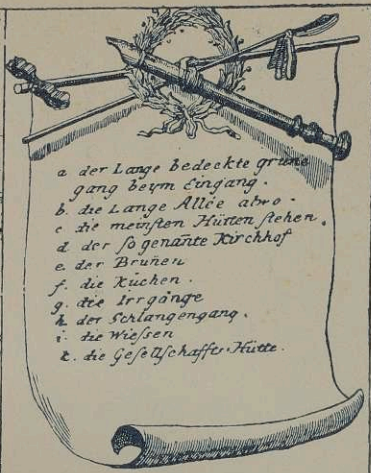 a der Lange bedeckte grune
gang beym Eingang.
b. die Lange Allée alwo.
c die meinsten Hütten stehen.
d der so genante Kirchhof
e. der Brunen
f. die Küchen.
g. die Irrgänge
h der Schlangengang.
i. die Wiessen
k. die Gesellschaffts-Hütte.